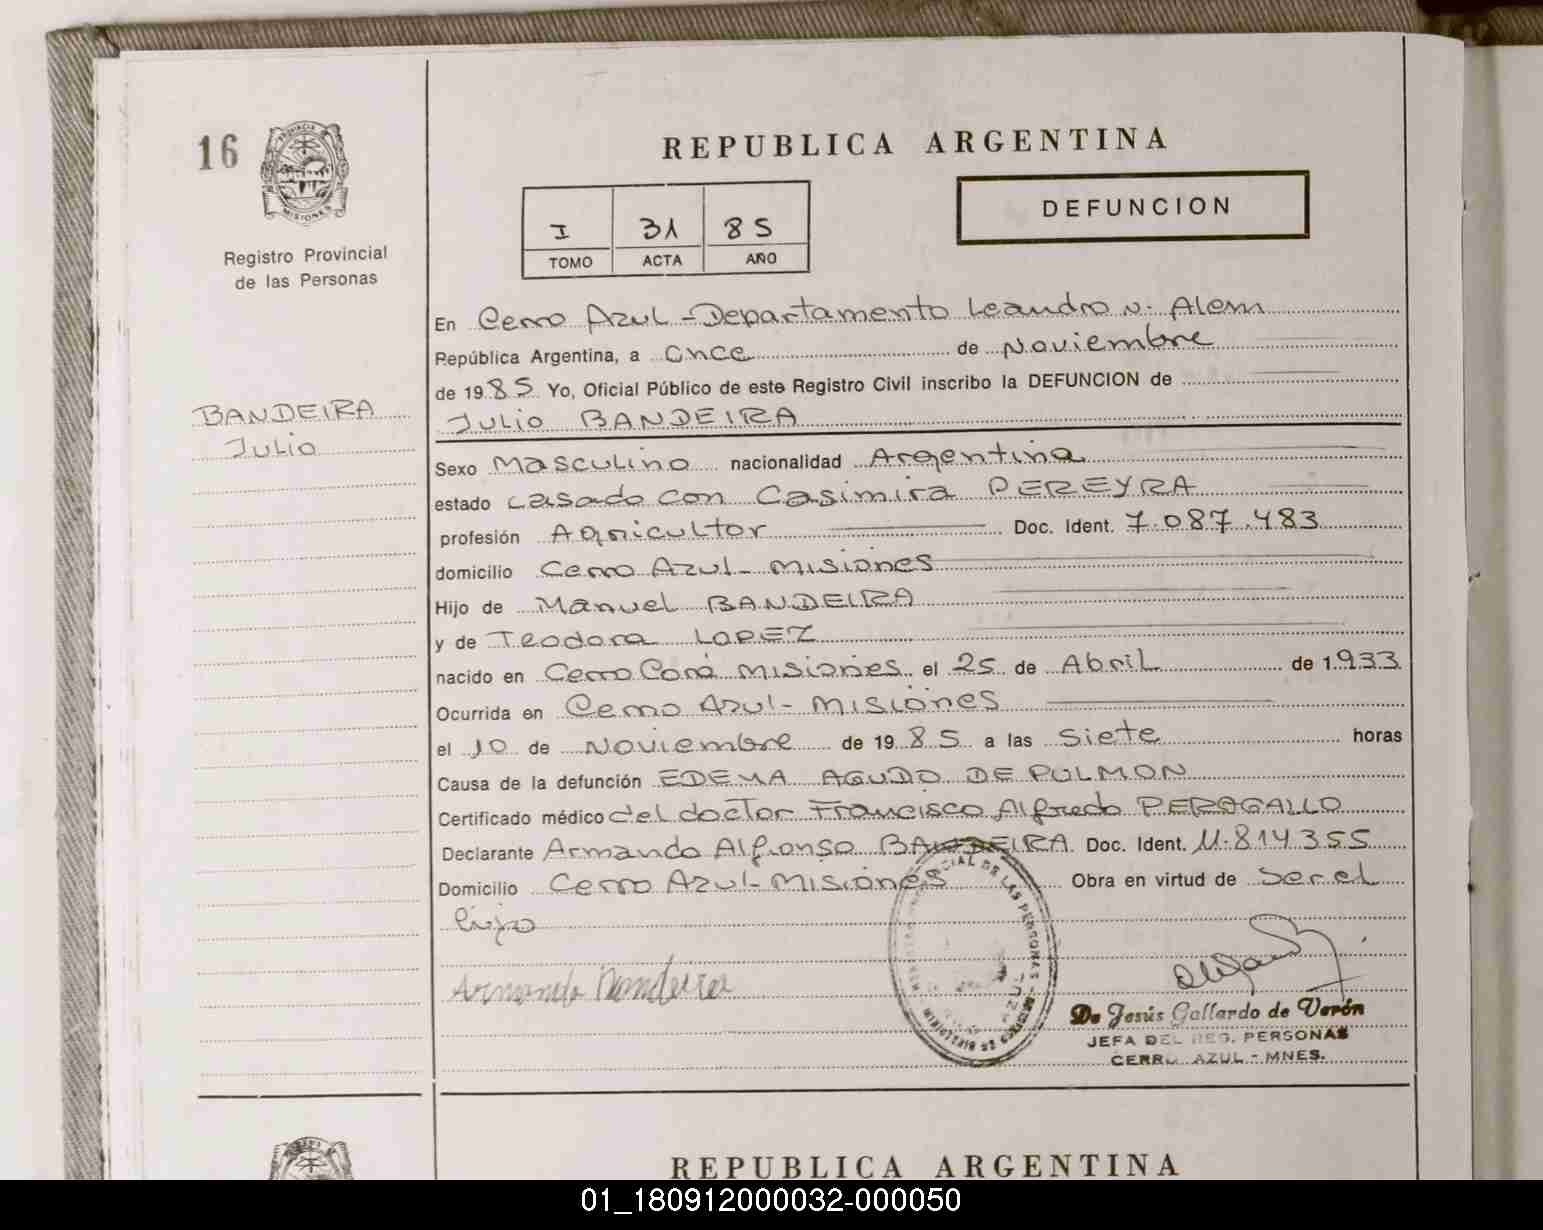 16
PROVINCIA DE
MISIONES
Registro Provincial
de las Personas
REPUBLICA ARGENTINA
I 31 85
TOMO ACTA AÑO
DEFUNCION
BANDEIRA
Julio
En Cerro Azul - Departamento Leandro N. Alem
República Argentina, a Once de Noviembre
de 1985 Yo, Oficial Público de este Registro Civil inscribo la DEFUNCION de
Julio BANDEIRA
Sexo Masculino nacionalidad Argentina
estado casado con Casimira PEREYRA
profesión Agricultor Doc. Ident. 7.087.483
domicilio Cerro Azul - Misiones
Hijo de Manuel BANDEIRA
y de Teodora LOPEZ
nacido en Cerro Corá Misiones el 25 de Abril de 1.933
Ocurrida en Cerro Azul - Misiones
el 10 de Noviembre de 1985 a las Siete horas
Causa de la defunción EDEMA AGUDO DE PULMON
Certificado médico del doctor Francisco Alfredo PEROGALLO
Declarante Armando Alfonso BANDEIRA Doc. Ident. M.814355
Domicilio Cerro Azul - Misiones Obra en virtud de Ser el
hijo
Armando Bandeira
DE LAS PERSONAS
De Jesús Gallardo de Verón
JEFA DEL REG. PERSONAS
CERRO AZUL - MNES.
REPUBLICA ARGENTINA
01_180912000032-000050